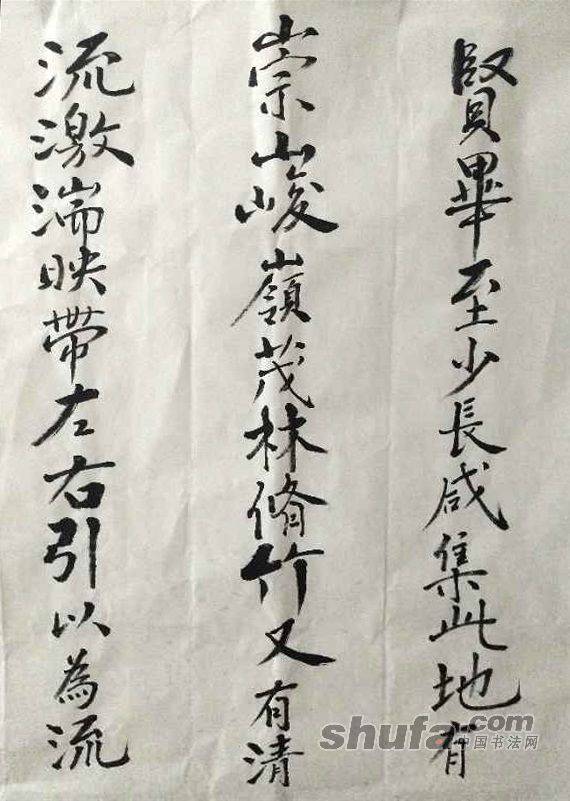 賢畢至少長咸集此地有
崇山峻嶺茂林脩竹又有清
流激湍映帶左右引以為流
shufa.com
中国书法网